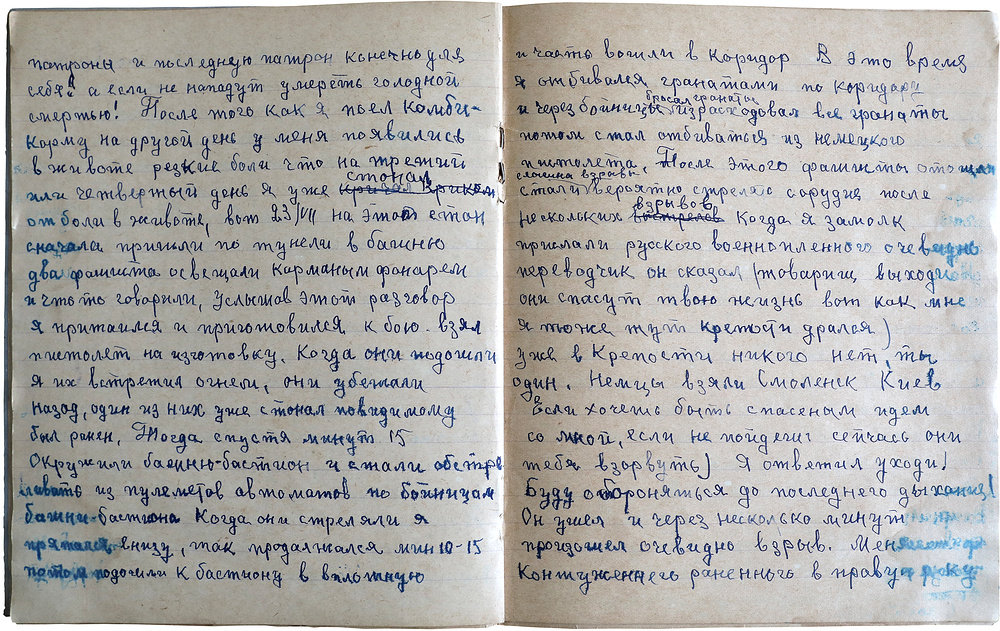 патроны и последнюю патрон конечно для
себя! а если не нападут умереть голодной
смертью! После того как я поел комби-
корму на другой день у меня появились
в животе резкие боли что на третий
стонал
или четвертый день я уже кричал криком
от боли в животе, вот 23/VII на этот стон
сначала пришли по тунели в башню
два фашиста освещали карманым фанарем
и что то говорили, услышав этот разговор
я притаился и приготовился к бою. взял
пистолет на изготовку. Когда они подошли
я их встретил огнем, они убежали
назод, один из них уже стонал повидимому
был ранен. Тогда спустя минут 15
Окружили башню-бастион и стали обстре
ливать из пулеметов автоматов по бойницам
башни-бастиона Когда они стреляли я
прятался внизу, так продалжался мин 10-15
потом подошли к бастиону в вплотную
и часть вошли в коридор В это время
я отбивался гранатами по коридару
бросал гранаты
и через бойницы израсходовал все гранаты
потом стал отбиваться из немецкого
пистолета. После этого фашисты отошли
слышна взрывы
стали вероятно стрелять с орудие после
взрывов
нескольких выстрелов Когда я замолк
прислали русского военнопленного очевидно
переводчик он сказал (товарищ выходи
они спасут твою жизнь вот как мне
я тоже тут крепости дрался)
уже в Крепости никого нет, ты
один. Немцы взяли Смоленск Киев
Если хочешь быть спасеным идем
со мной, если не пойдешь сейчась они
тебя взорвуть) Я ответил уходи!
Буду обороняться до последнего дыхания!
Он ушел и через несколько минут
произошел очевидно взрыв. Меня
контуженнего раненного в праву руку